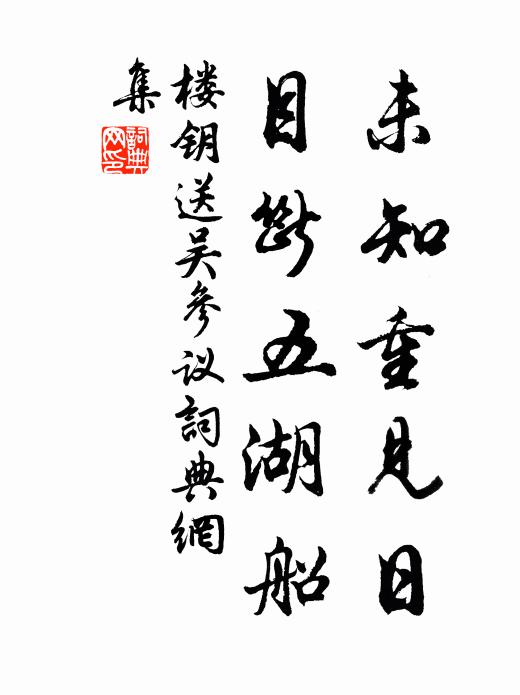 未知重见日
目断五湖船
楼钥送吴参议詞典網
集
詞典
网印